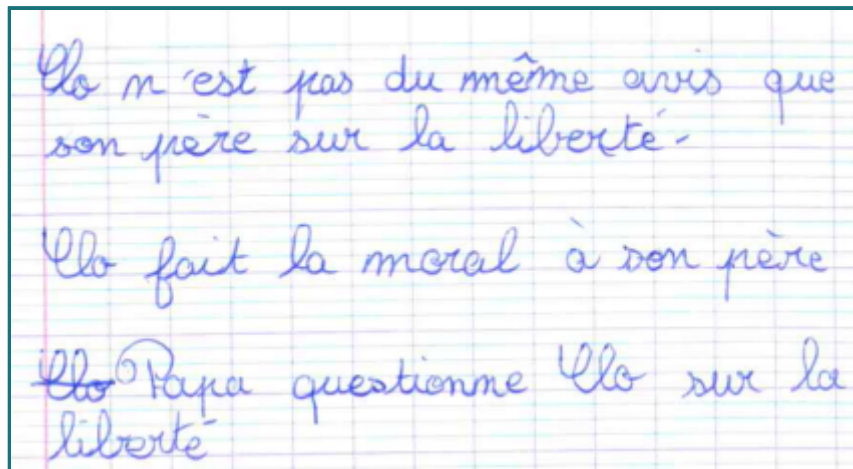 Clo n'est pas du même avis que
son père sur la liberté.
Clo fait la moral à son père
Clo Papa questionne Clo sur la
liberté